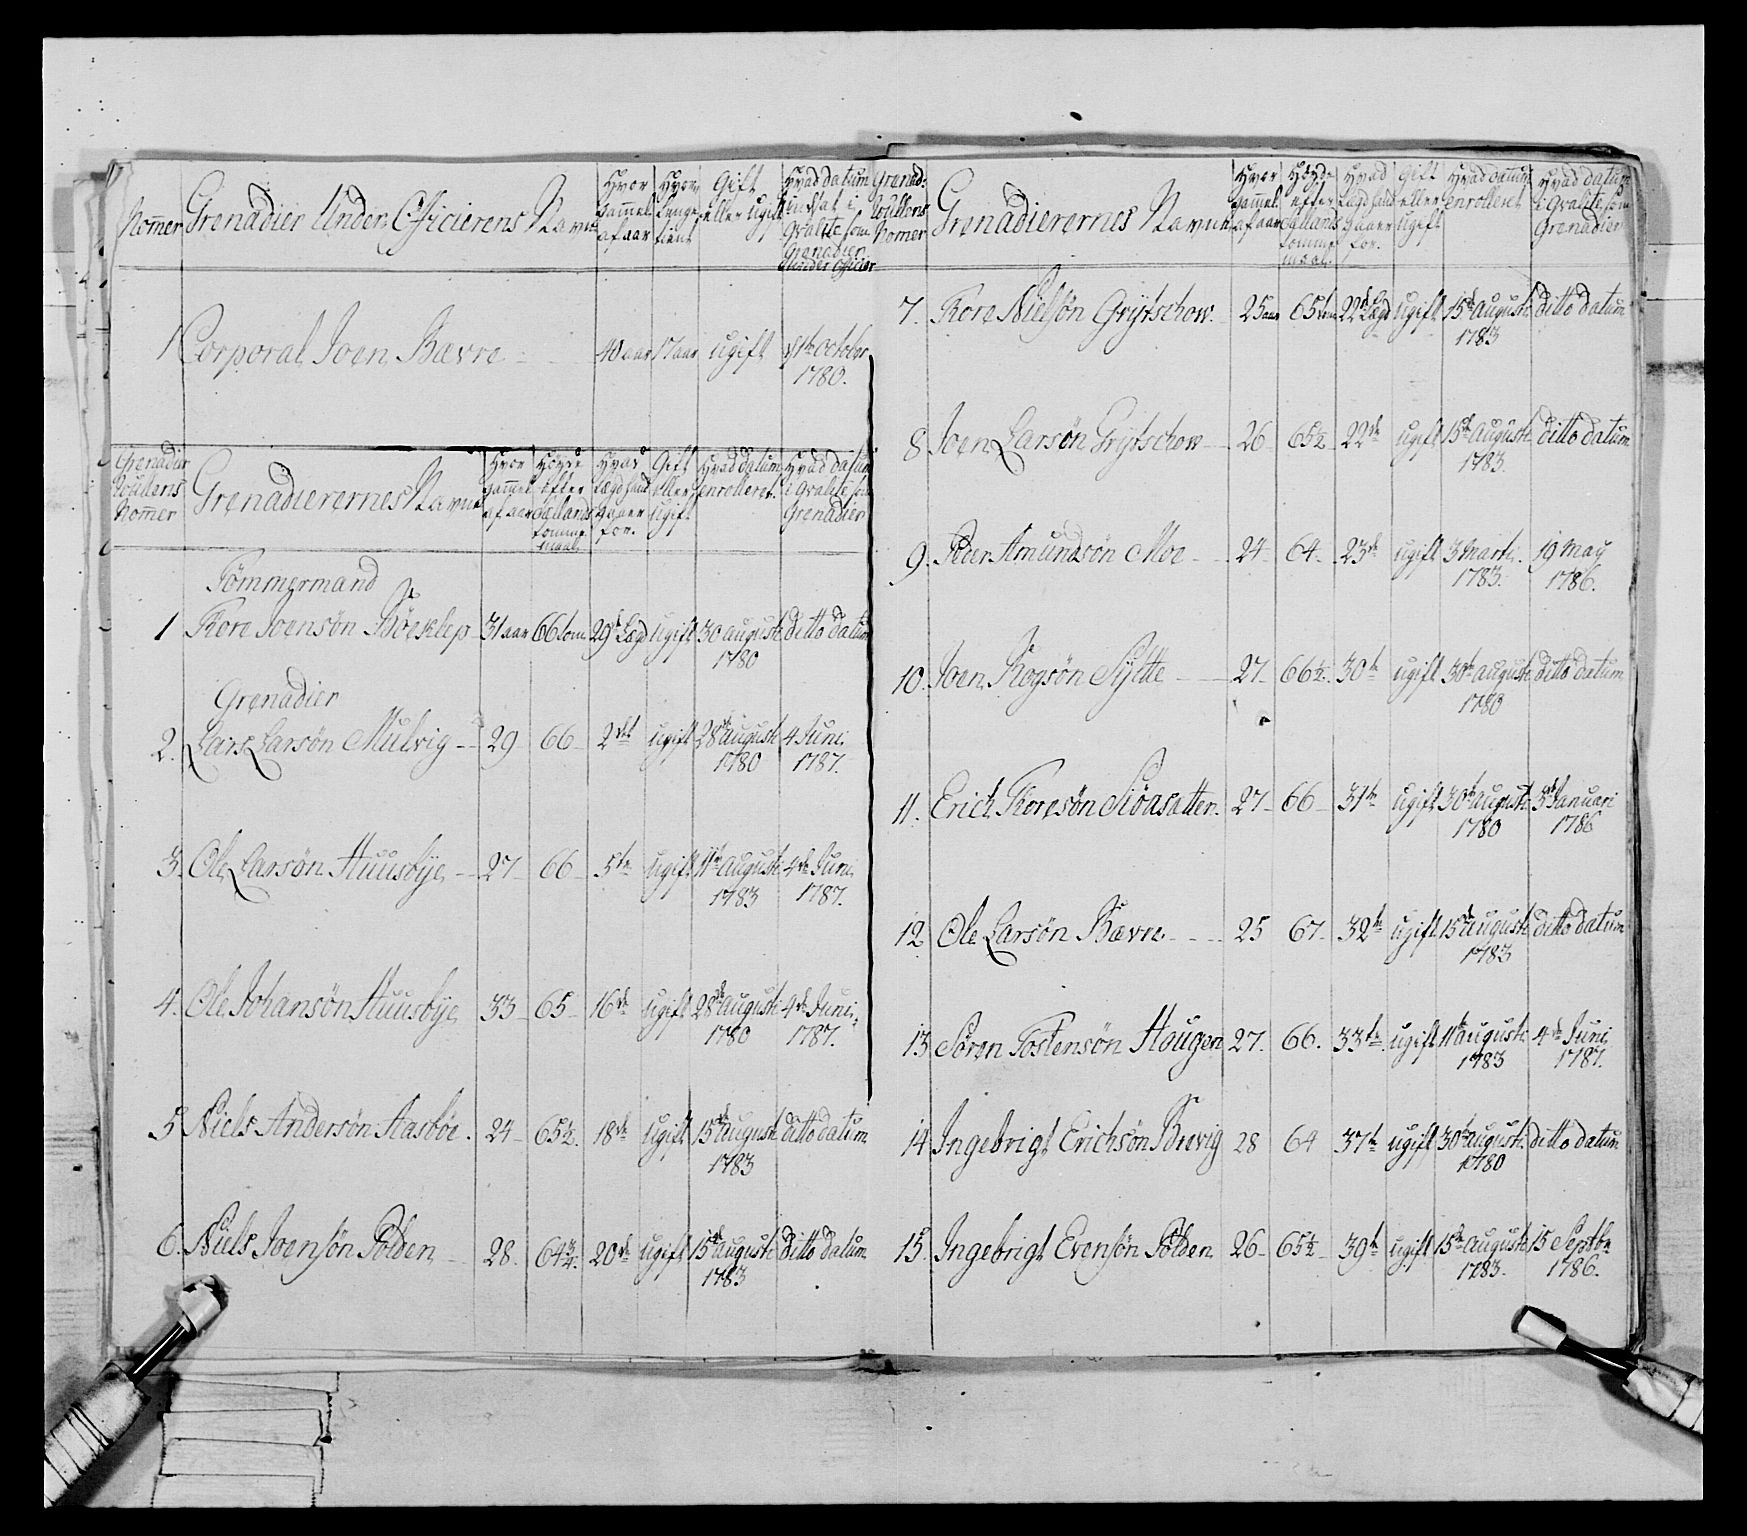 Nomer Grenadier Under Officierens Navne Hvor Gammel af aar Hvor Lenge tient Gift eller ugift Hvad datum indsat i Qvalite som Grenadier Under Officier
1 Corporal Joen Bævre 40 aar 17 aar ugift 1780.
Grenadier Nomer Grenadierernes Navne Hvor Gammel af aar Höyde efter Siellands tomme maal Hvad Lægd hand staaer for. Gift eller ugift Hvad datum enrolleret. Hvad datum i Qvalite som Grenadier
Tömmermand
1 Tore Joensön 31 aar 66 tom 29de Lægd ugift 30 augusti 1780 ditto datum
Grenadier
2. Lars Larsön Mulvig 29 66 2det ugift 28de augusti 1780 4 Juni. 1787.
3. Ole Larsön Huusbye 27 66 5te ugift 11te augusti 1783 4de Juni. 1787.
4. Ole Johansön Huusbye 33 65 16de ugift 28de augusti 1780 4de Juni. 1787.
5 Niels Andersön Aasböe. 24 65½. 18de ugift 15de august. 1783 ditto datum
6. Niels Joensön Polden 28. 64¾. 20de ugift 15de augusti 1783 ditto datum
Grenad: Nomer Grenadierernes Navne Hvor Gammel af aar Höyde efter Siællands tomme maal. Hvad Lægd hand staaer for. Gift eller ugift Hvad datum enrolleret Hvad datum i Qvalite som Grenadier
7. Tore Nielsön Grytschow. 25 aar 65 tom 22de Lægd ugift 15de augusti 1783 ditto datum
8 Joen Larsön Grytschow 26 65½ 22de ugift 15de augusti 1783. ditto datum
9. Peer Amundsön Moe 24 64. 23de ugift 3 Marti. 1783. 19 May 1786.
10. Joen Sylte 27 66½. 30te ugift 30te augusti 1780 ditto datum
11. Erich Toresön 27 66 31te ugift 30te augusti 1780 3de Januari 1786
12 Ole Larsön Bævre 25 67 32te ugift 15de augusti 1783 ditto datum
13 Sören Tostensön Hougen 27. 66. 33te ugift 11te augusti. 1783 4de Juni. 1787.
14 Ingebrigt Erichsön Brevig 28 64 37te ugift 30te augusti. 1780 ditto datum
15. Ingebrigt Evensön Polden 26 65½ 39te ugift 15de augusti 1783. 15 Septbr 1786.